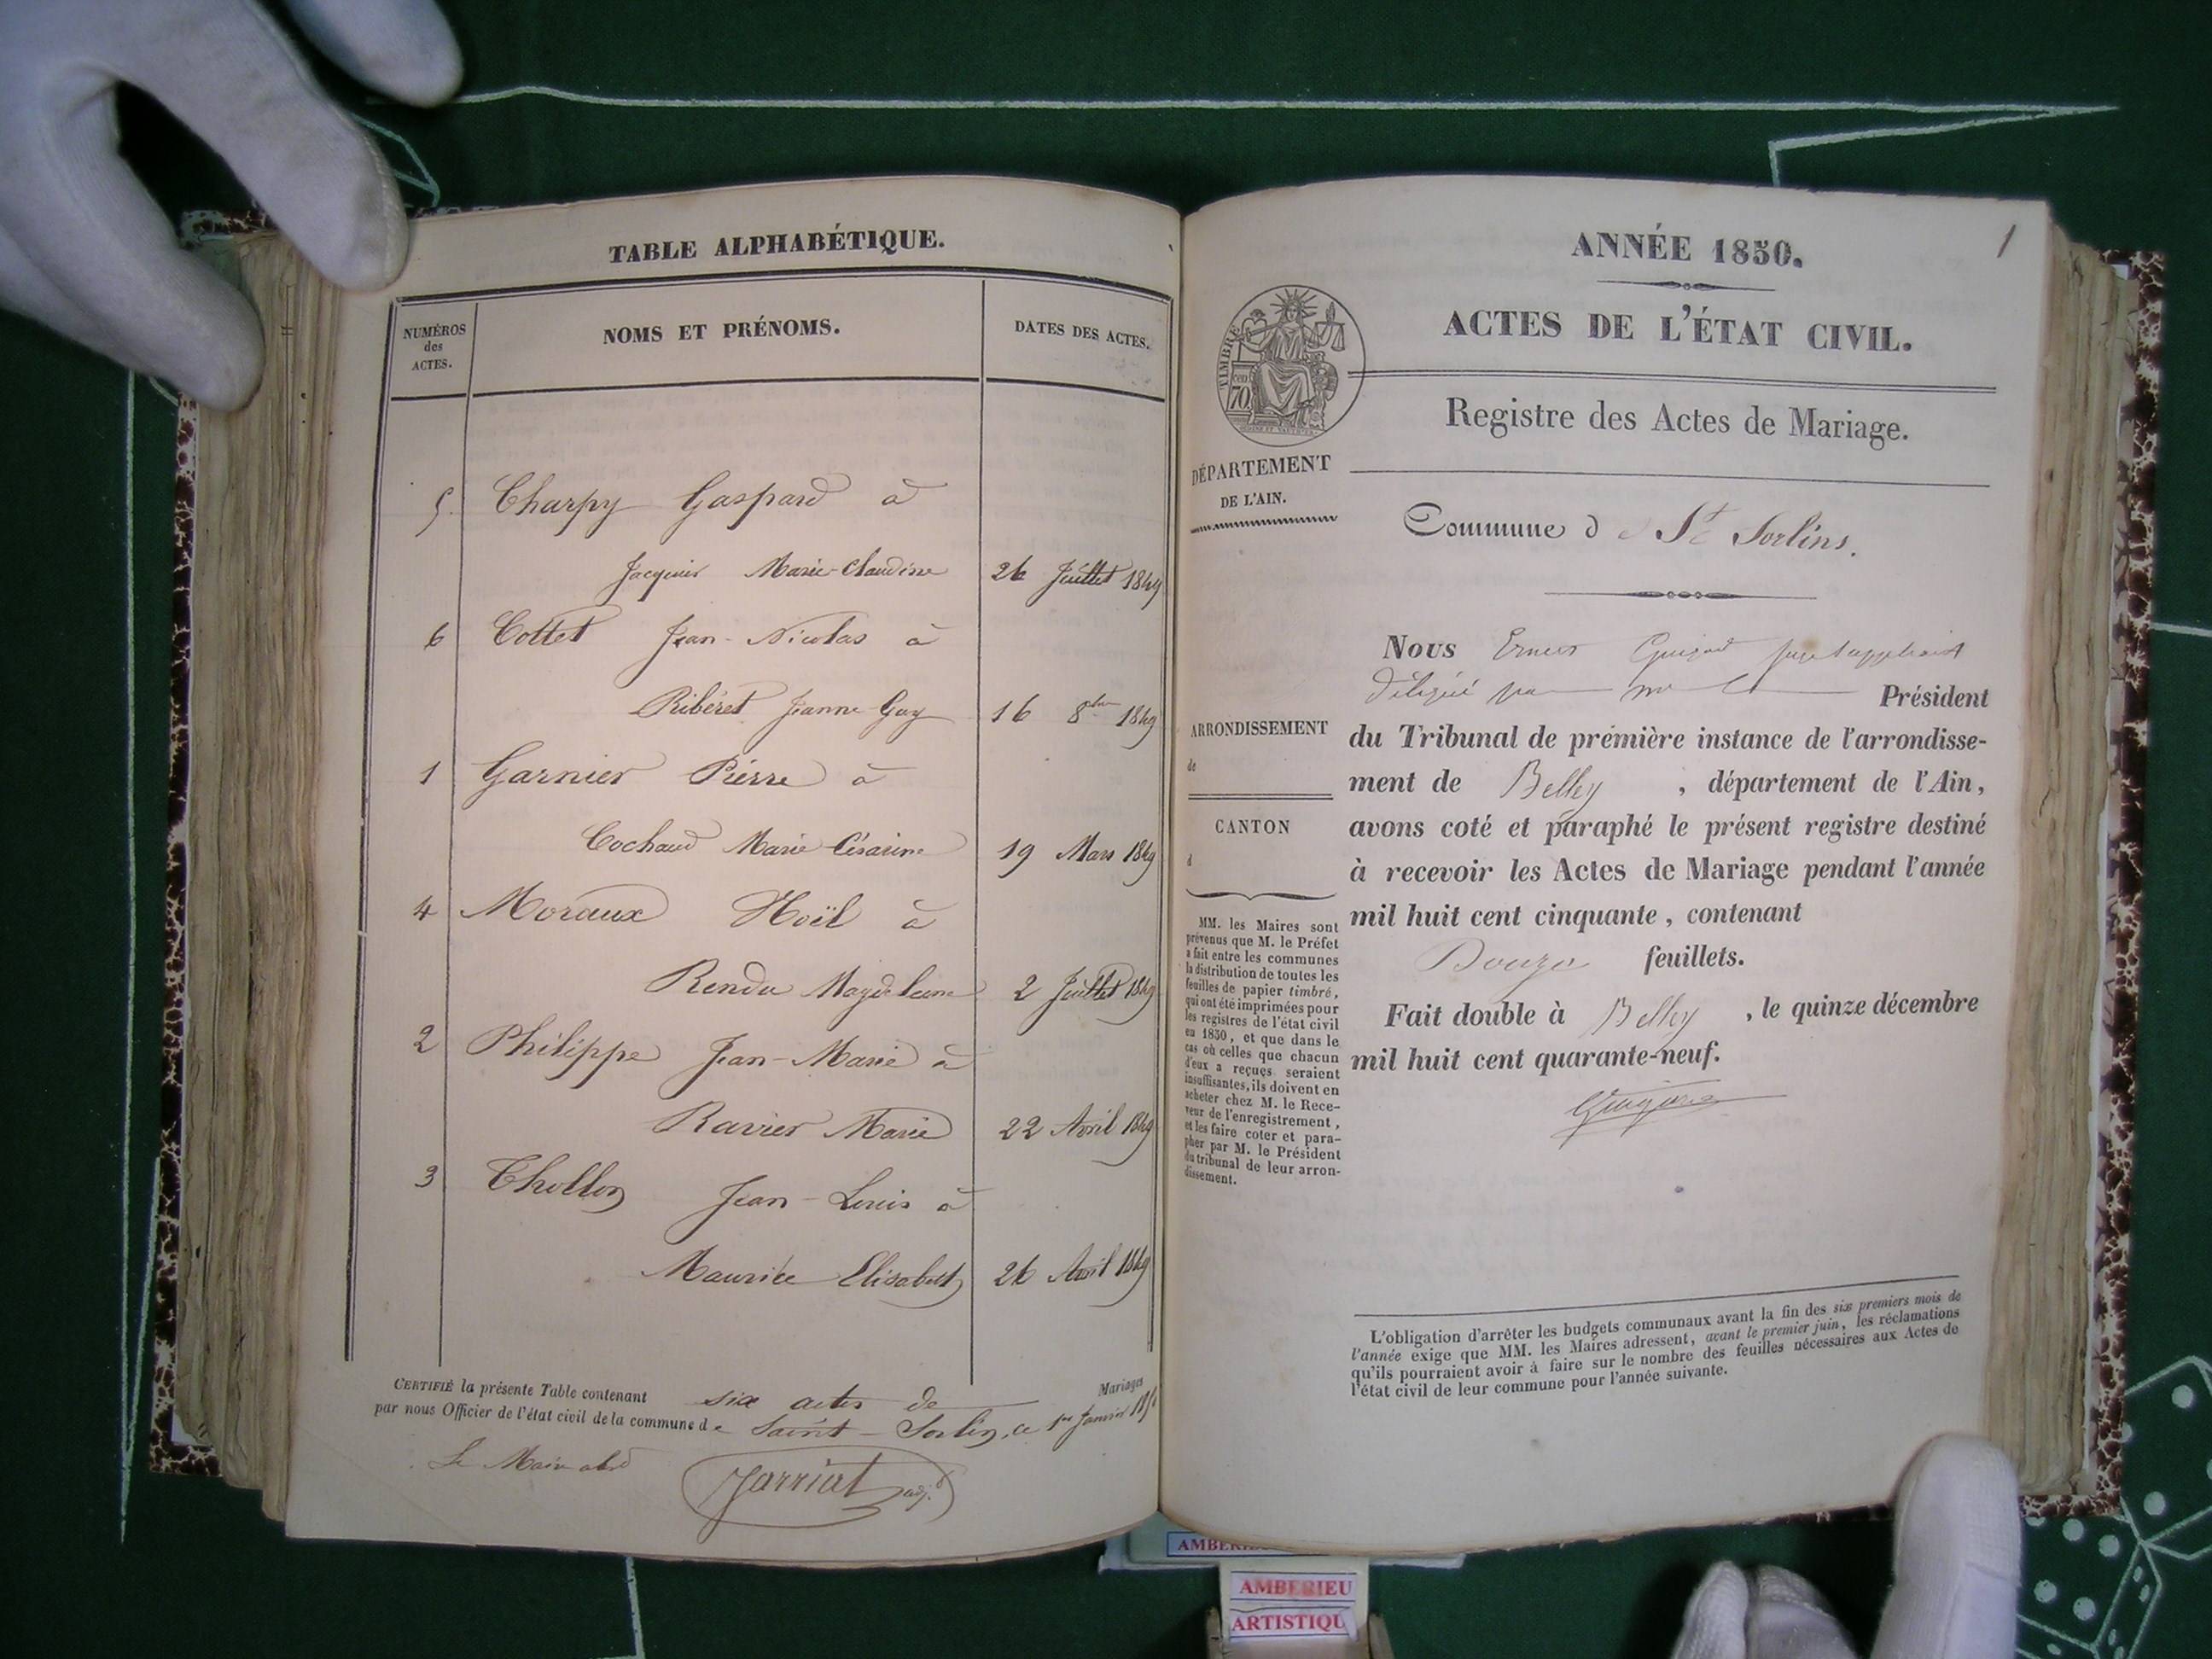 TABLE ALPHABÉTIQUE.
NUMÉROS
des
ACTES.
NOMS ET PRÉNOMS.
DATES DES ACTES.
5. Charpy Gaspard à
Jacquier Marie-Claudine 26 Juillet 1849
6 Cottet Jean-Nicolas à
Ribéret Jeanne Guy 16 8bre 1849
1 Garnier Pierre à
Cochaud Marie Césarine 19 Mars 1849
4 Moraux Noël à
Rendu Magdeleine 2 Juillet 1849
2 Philippe Jean-Marie à
Ravier Marie 22 Avril 1849
3 Thollon Jean-Louis à
Maurice Elisabeth 26 Avril 1849
CERTIFIÉ la présente Table contenant six actes de Mariages
par nous Officier de l'état civil de la commune de Saint-Sorlin, ce 1er Janvier
Le Maire abst
Jarriat adj.
1
ANNÉE 1850.
ACTES DE L'ÉTAT CIVIL.
TIMBRE
70
Registre des Actes de Mariage.
DÉPARTEMENT
DE L'AIN.
Commune de St Sorlins.
ARRONDISSEMENT
de
CANTON
d
MM. les Maires sont
prévenus que M. le Préfet
a fait entre les communes
la distribution de toutes les
feuilles de papier timbré,
qui ont été imprimées pour
les registres de l'état civil
en 1850, et que dans le
cas où celles que chacun
d'eux a reçues seraient
insuffisantes, ils doivent en
acheter chez M. le Rece-
veur de l'enregistrement,
et les faire coter et para-
pher par M. le Président
du tribunal de leur arron-
dissement.
Nous Ernest juge suppléant
délégué par Président
du Tribunal de première instance de l'arrondisse-
ment de Belley, département de l'Ain,
avons coté et paraphé le présent registre destiné
à recevoir les Actes de Mariage pendant l'année
mil huit cent cinquante, contenant
Douze feuillets.
Fait double à Belley, le quinze décembre
mil huit cent quarante-neuf.
L'obligation d'arrêter les budgets communaux avant la fin des six premiers mois de
l'année exige que MM. les Maires adressent, avant le premier juin, les réclamations
qu'ils pourraient avoir à faire sur le nombre des feuilles nécessaires aux Actes de
l'état civil de leur commune pour l'année suivante.
AMBERIEU
ARTISTIQU